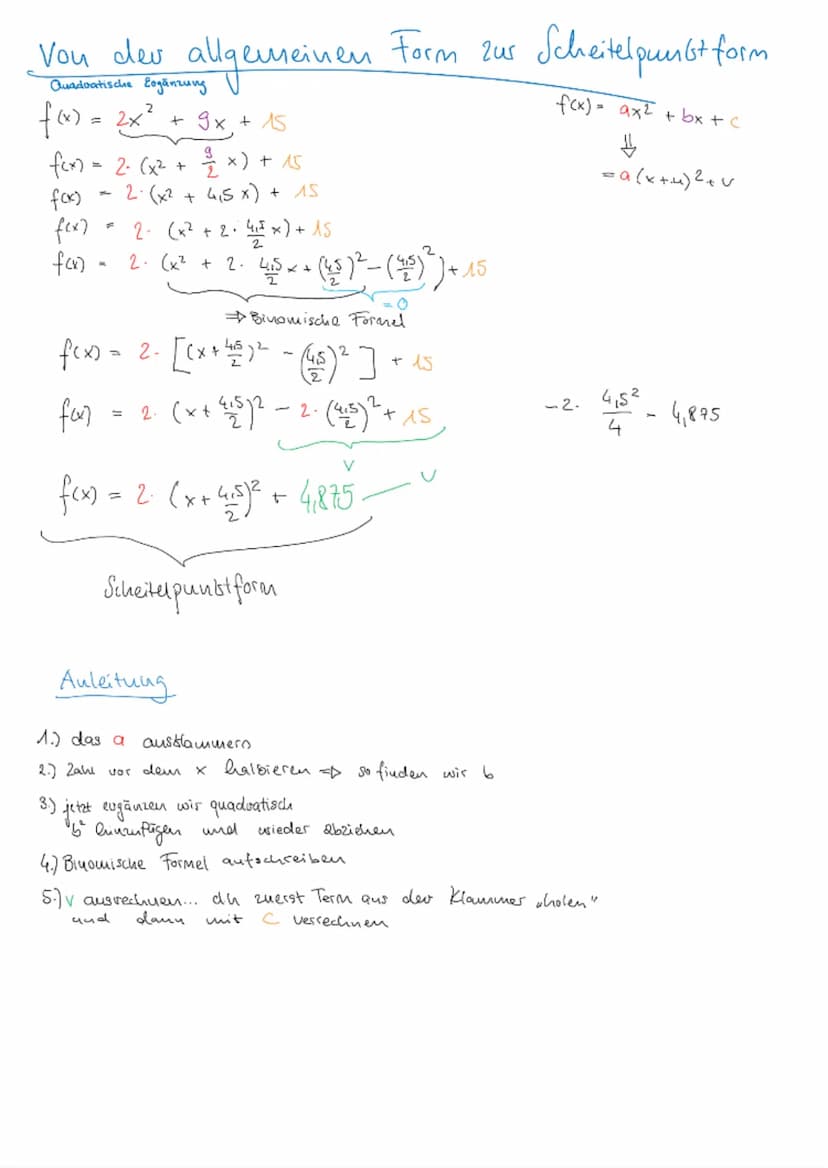 Von der allgemeinen Form zur Scheitelpunktform
Quadratische Ergänzung
f(x) = 2x² + 9x + 15
f(x) = ax² + bx + c
⇓
= a(x+u)² + v
f(x) = 2· (x² + 9/2 x) + 15
f(x) = 2· (x² + 4,5 x) + 15
f(x) = 2· (x² + 2· 4,5/2 x) + 15
f(x) = 2· (x² + 2· 4,5/2 x + (4,5/2)² - (4,5/2)²) + 15
= 0
⇒ Binomische Formel
f(x) = 2· [(x + 4,5/2)² - (4,5/2)²] + 15
f(x) = 2· (x + 4,5/2)² - 2· (4,5/2)² + 15
-2· 4,5²/4 - 4,875
v
f(x) = 2· (x + 4,5/2)² + 4,875 — v
Scheitelpunktform
Anleitung
1.) das a ausklammern
2.) Zahl vor dem x halbieren ⇒ so finden wir b
3.) jetzt ergänzen wir quadratisch
"b² hinzufügen und wieder abziehen
4.) Binomische Formel aufschreiben
5.) v ausrechnen... dh zuerst Term aus der Klammer „holen"
und dann mit C verrechnen